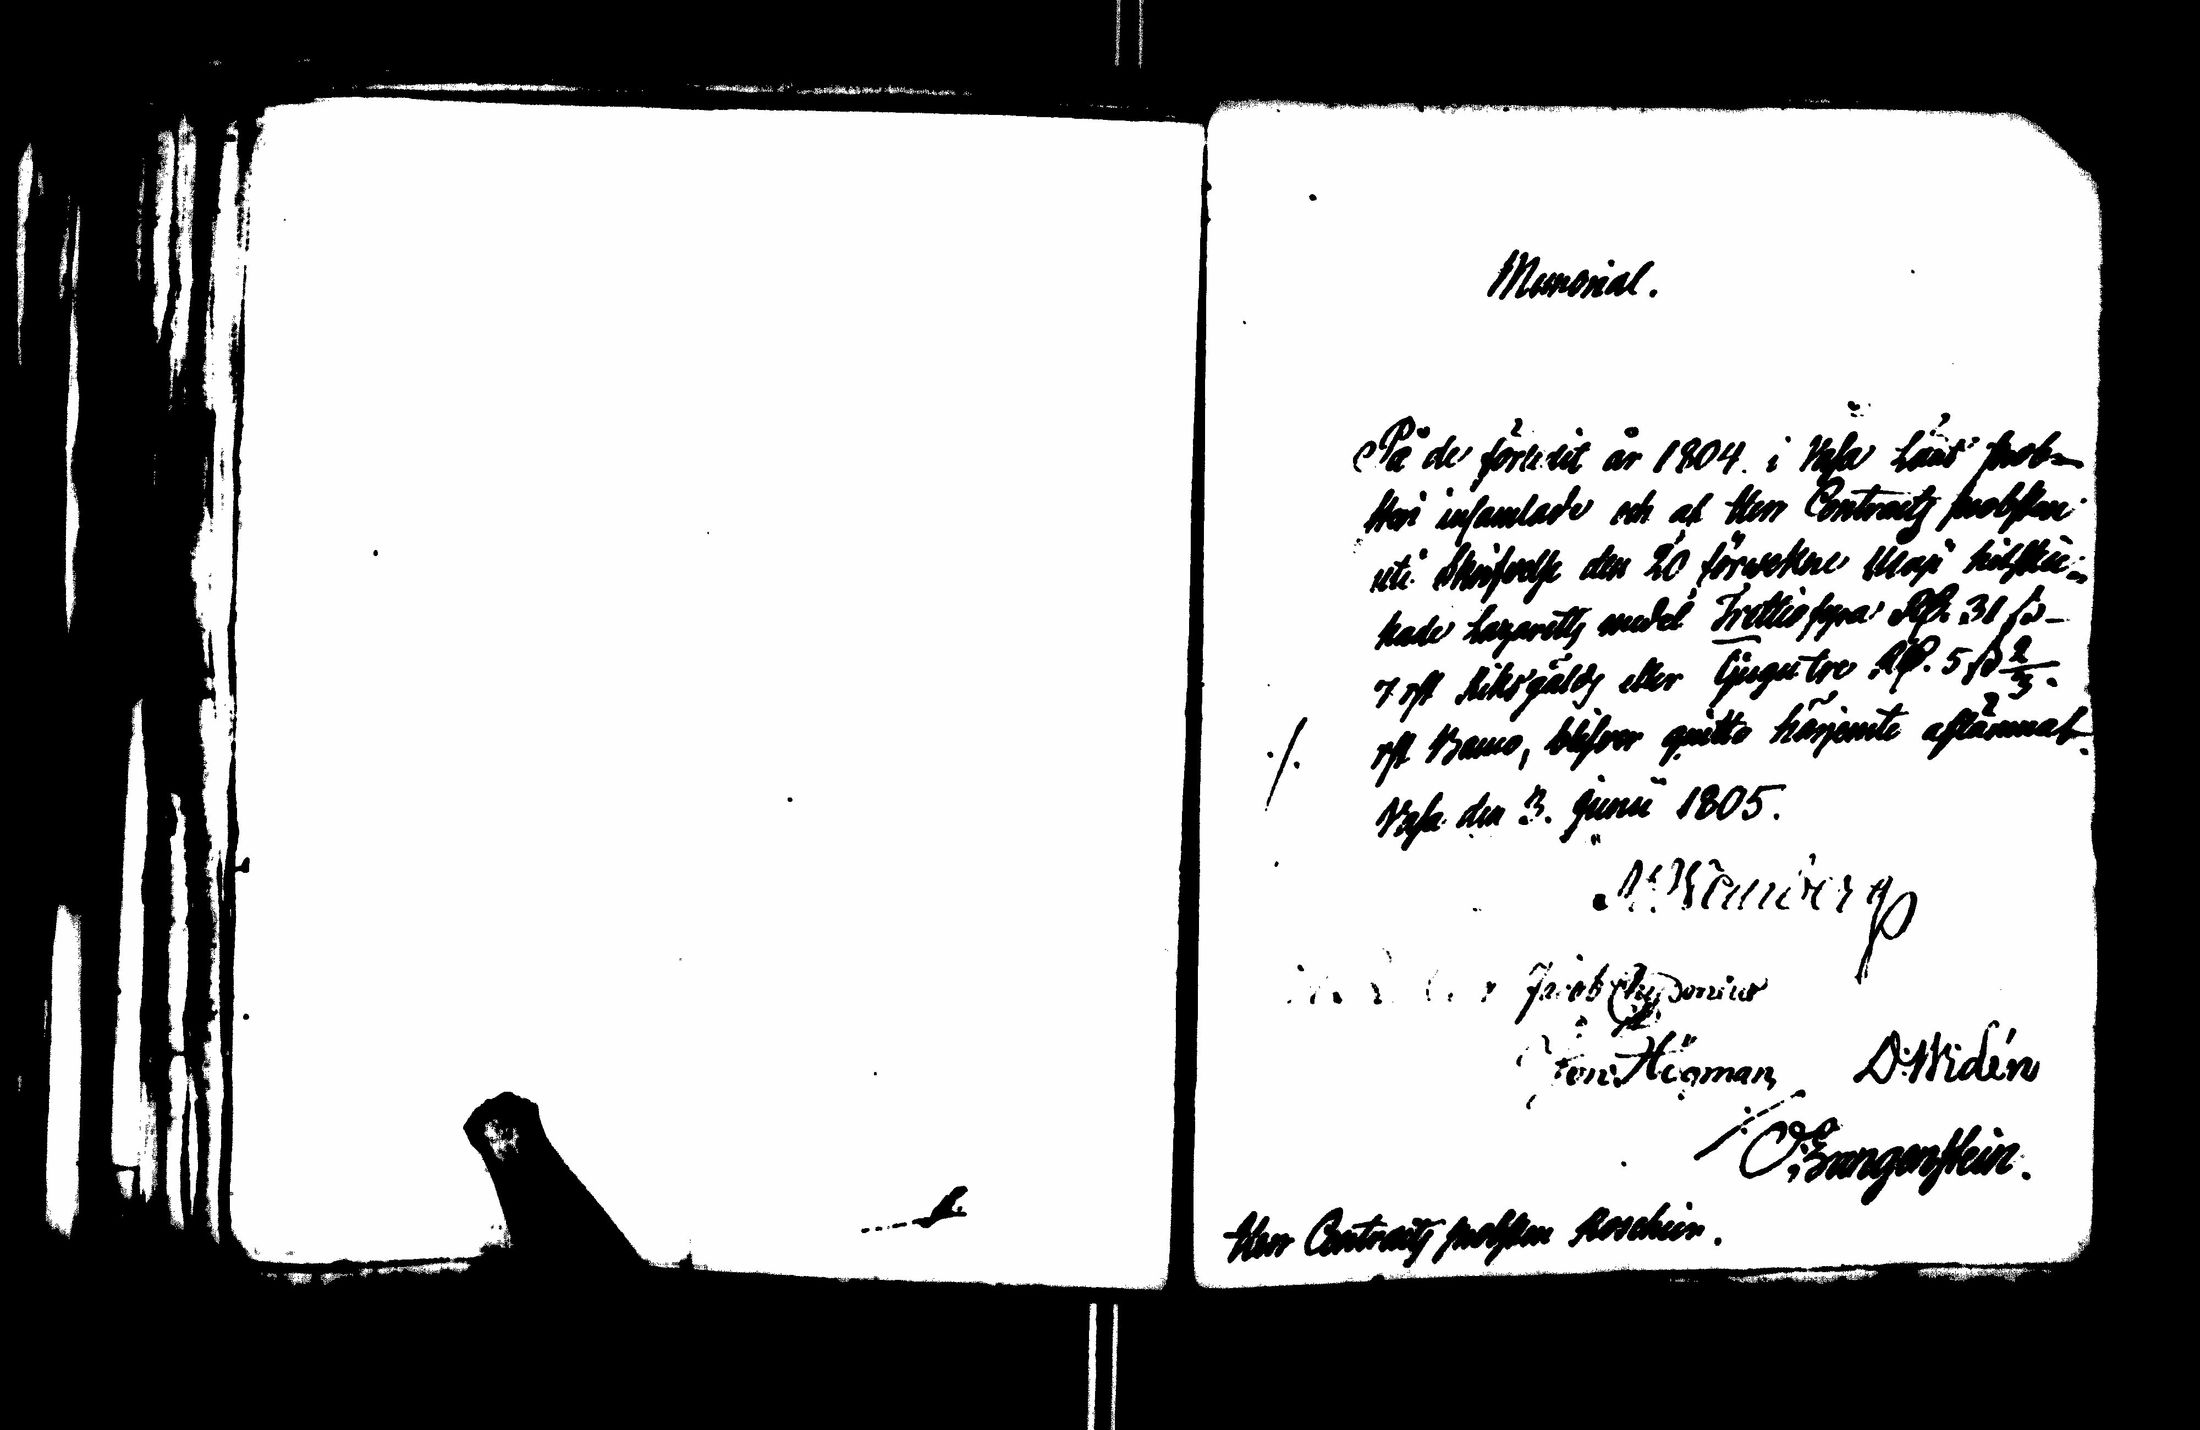 Memorial.
På de förledit år 1804. i Wasa Läns prob-
steri insamlade och af Herr Contracts probsten
uti Skrifvelse den 20 förwekne Maji hitskic-
kade Lazaretts medel Trettiofyra Rd. 31 s
7 rst Riksgälds eller Tjugutre Rd. 5 s 2/3
rst Banco, blifver quitto härjemte aflämnat.
Wasa den 3. Junii 1805.
Jacob Chydenius
Högman D. Widén
Langenstein.
Herr Contracts probsten Roschier.